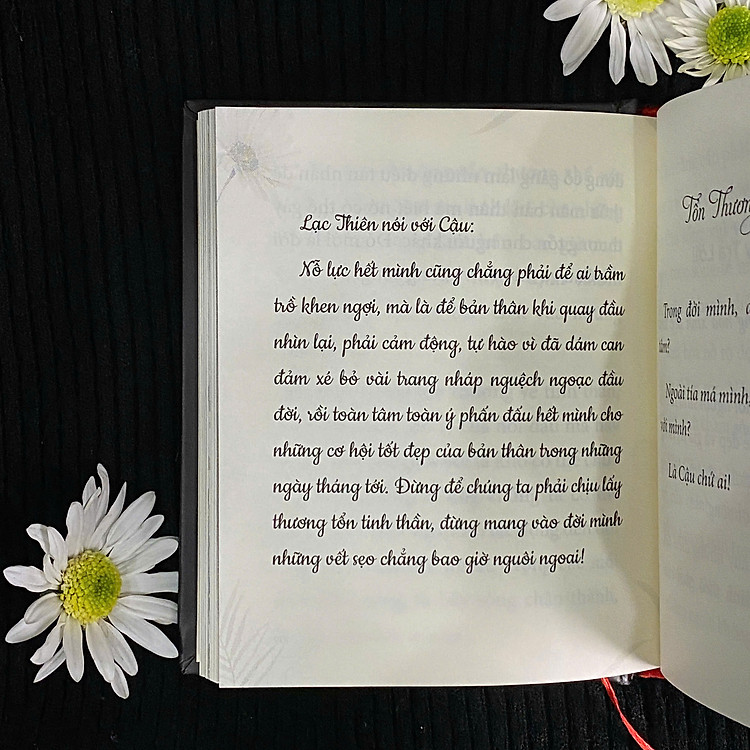 Lạc Thiên nói với Cậu:
Nỗ lực hết mình cũng chẳng phải để ai trầm
trồ khen ngợi, mà là để bản thân khi quay đầu
nhìn lại, phải cảm động, tự hào vì đã dám can
đảm xé bỏ vài trang nháp nguệch ngoạc đầu
đời, rồi toàn tâm toàn ý phấn đấu hết mình cho
những cơ hội tốt đẹp của bản thân trong những
ngày tháng tới. Đừng để chúng ta phải chịu lấy
thương tổn tinh thần, đừng mang vào đời mình
những vết sẹo chẳng bao giờ nguôi ngoai!
Tổn Thương
Trong đời mình,
tâm?
Ngoài tía má mình,
với mình?
Là Cậu chứ ai!